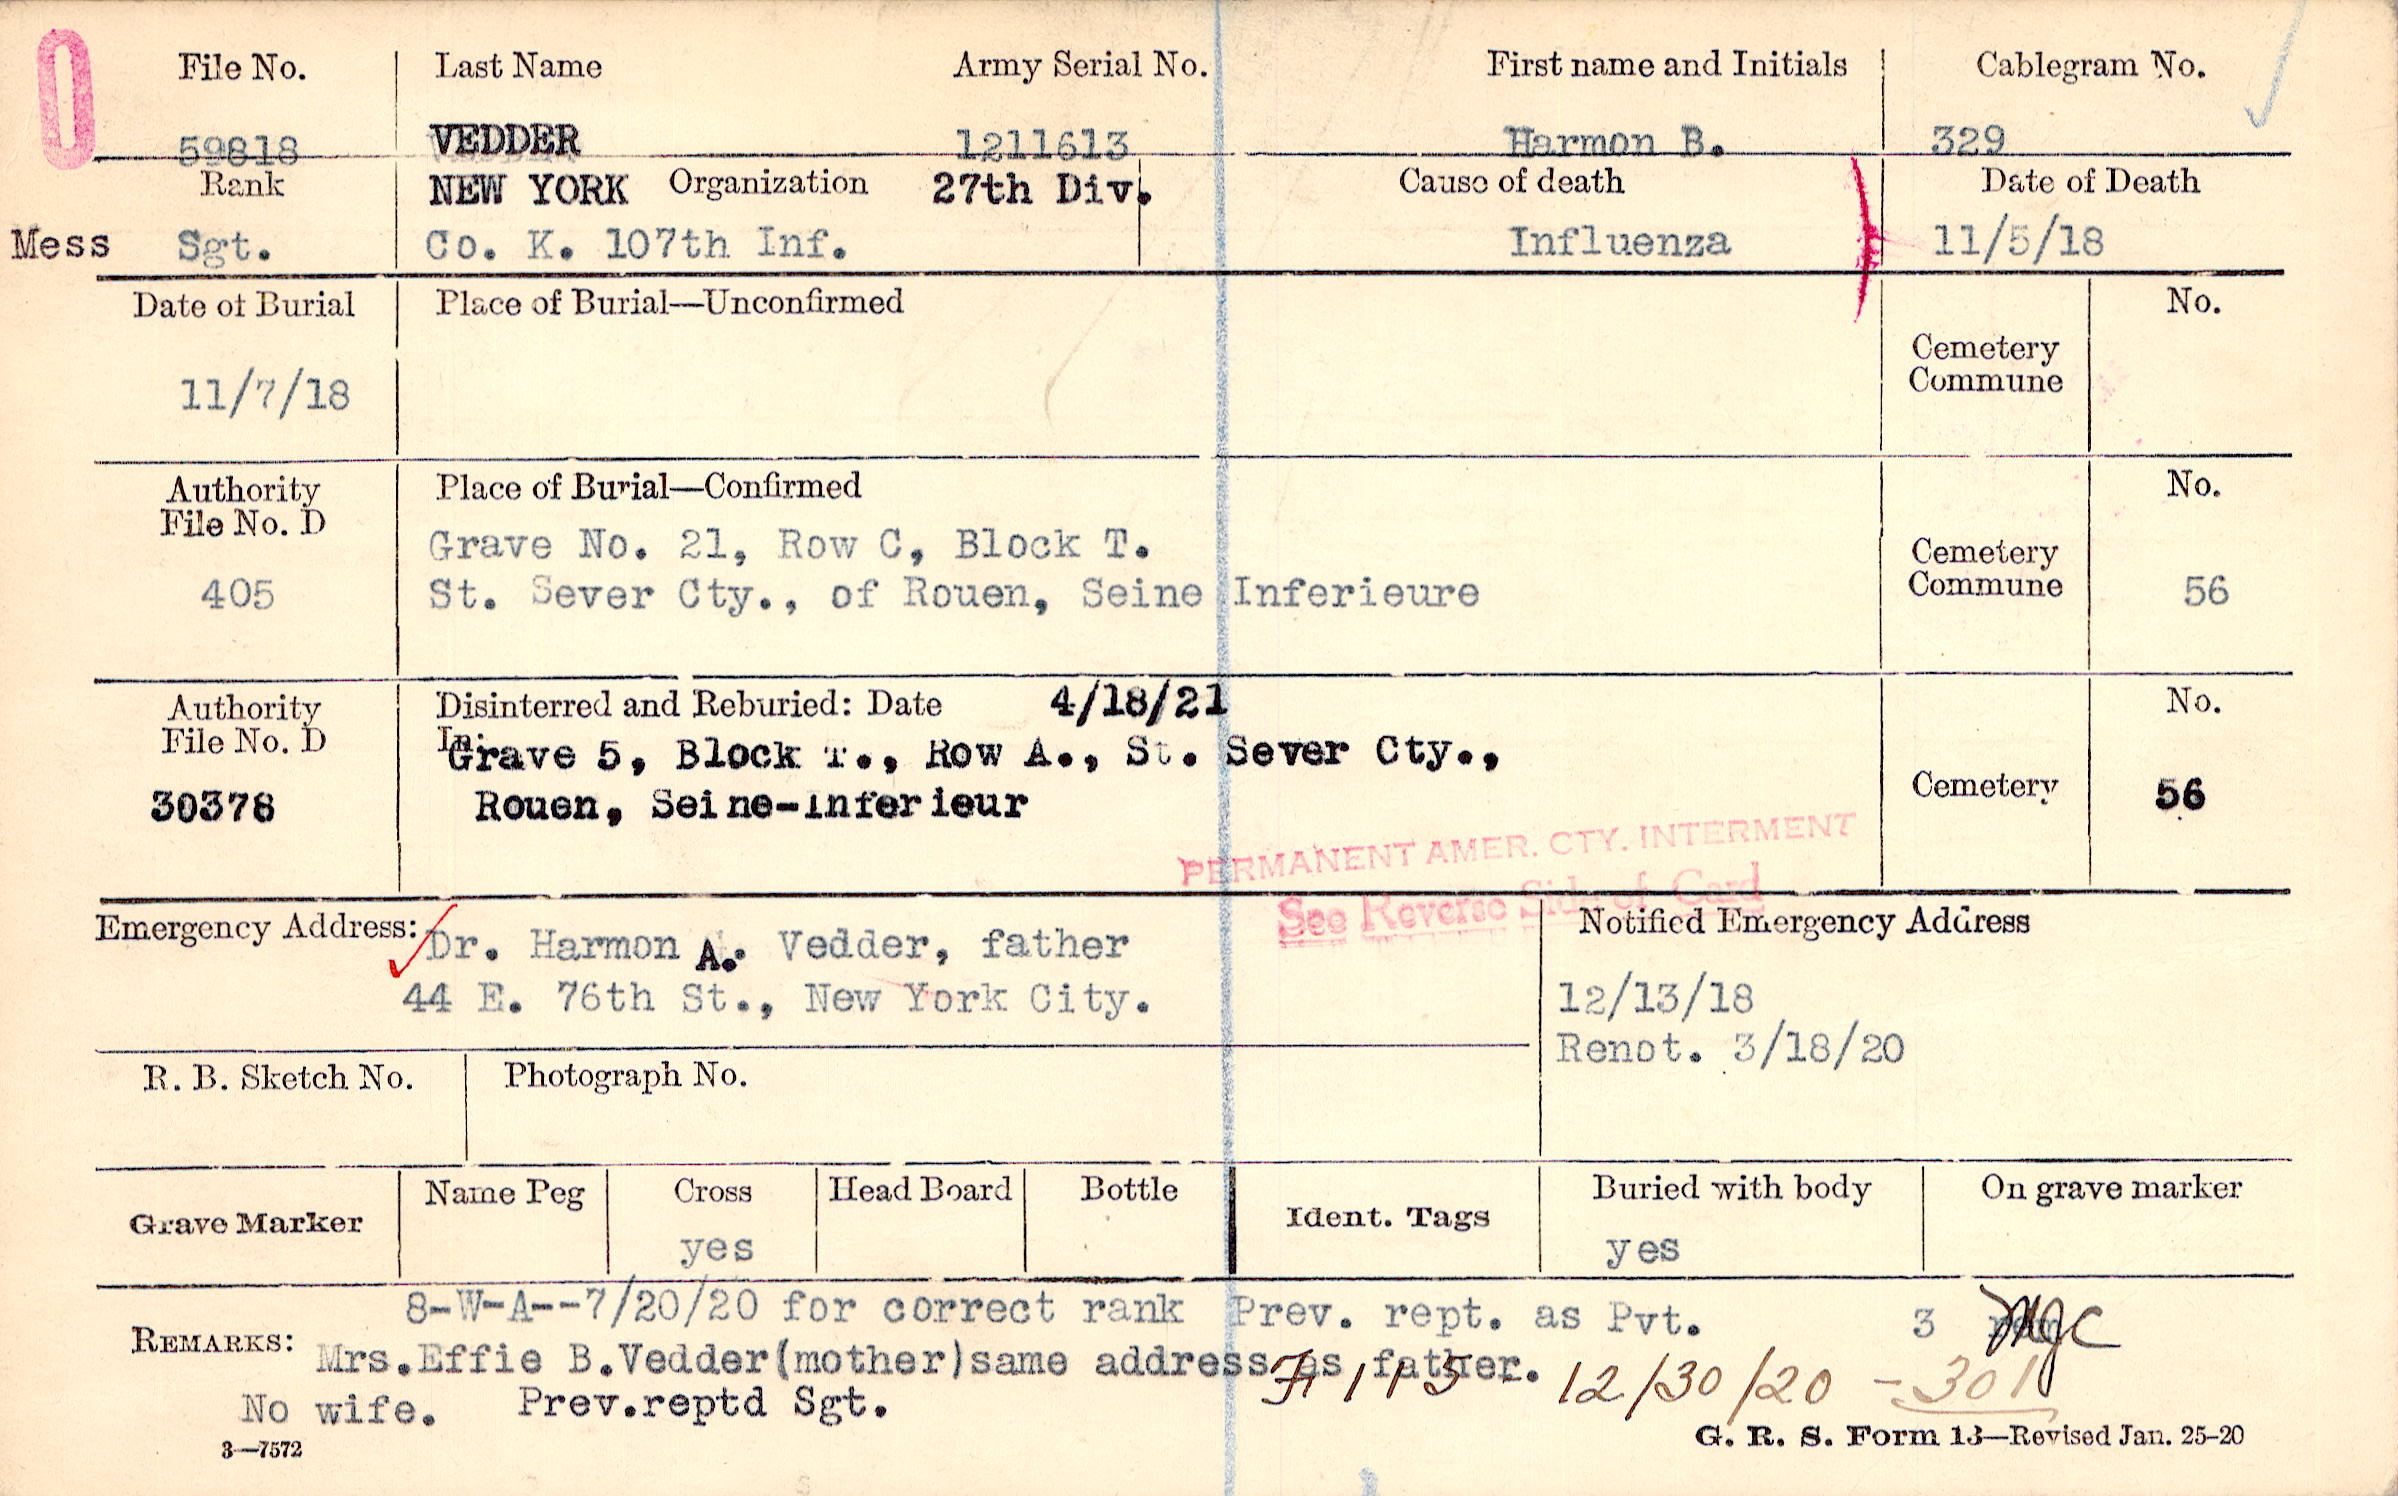 File No. Last Name Army Serial No. First name and Initials Cablegram No.
59818 VEDDER 1211613 Harmon B. 329
Rank NEW YORK Organization 27th Div. Cause of death Date of Death
Mess Sgt. Co. K. 107th Inf. Influenza 11/5/18
Date of Burial Place of Burial—Unconfirmed No.
Cemetery
Commune
11/7/18
Authority Place of Burial—Confirmed No.
File No. D
Grave No. 21, Row C, Block T. Cemetery
405 St. Sever Cty., of Rouen, Seine Inferieure Commune 56
Authority Disinterred and Reburied: Date 4/18/21 No.
File No. D In:
Grave 5, Block T., Row A., St. Sever Cty.,
30378 Rouen, Seine-Inferieur Cemetery 56
PERMANENT AMER. CTY. INTERMENT
See Reverse Side of Card
Emergency Address: Notified Emergency Address
Dr. Harmon A. Vedder, father
44 E. 76th St., New York City. 12/13/18
Renot. 3/18/20
R. B. Sketch No. Photograph No.
Grave Marker Name Peg Cross Head Board Bottle Ident. Tags Buried with body On grave marker
yes yes
8-W-A--7/20/20 for correct rank Prev. rept. as Pvt. 3
REMARKS: Mrs.Effie B.Vedder(mother)same address as father.
12/30/20 - 301
No wife. Prev.reptd Sgt.
3—7572 G. R. S. Form 13—Revised Jan. 25-20